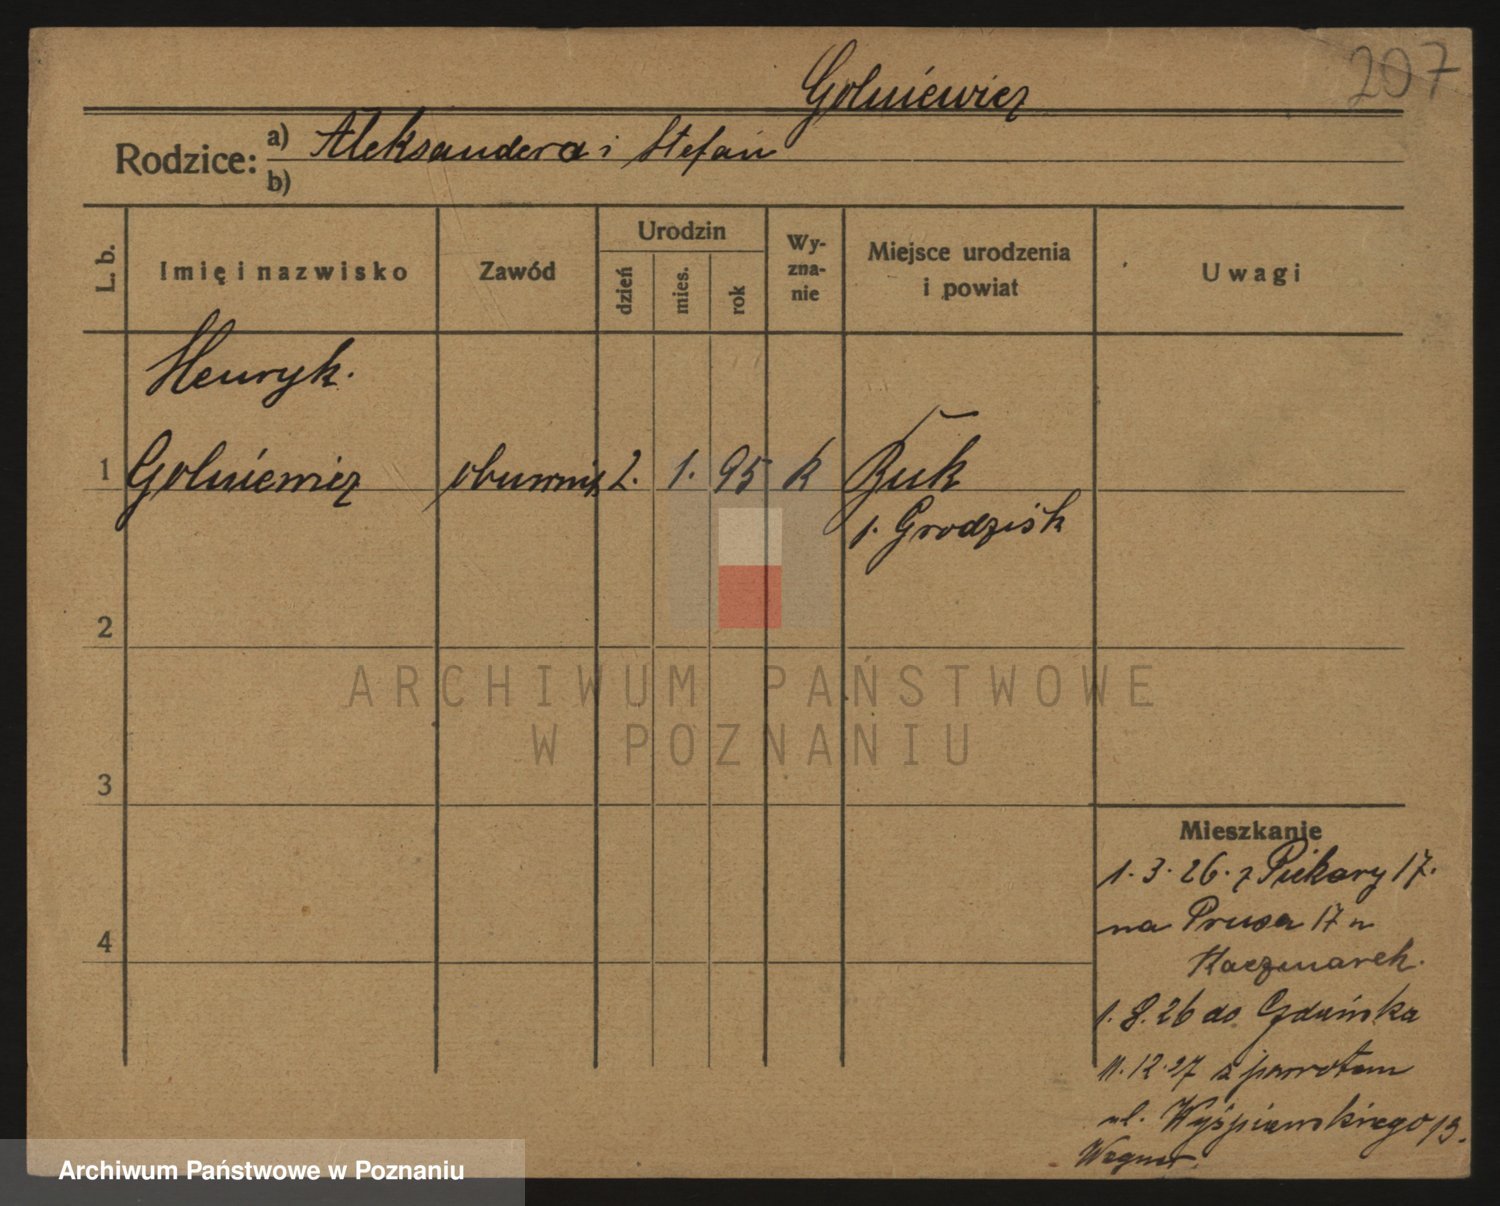 207
Golniewicz
Rodzice: a) Aleksandera i Stefan
b)
L. b. Imię i nazwisko Zawód Urodzin dzień mies. rok Wy-zna-nie Miejsce urodzenia i powiat Uwagi
Henryk.
1 Golniewicz obuwnik 2. 1. 95 k Buk
p. Grodzisk
2
3
4
Mieszkanie
1.3.26. z Piekary 17.
na Prusa 17 u
Kaczmarek.
1.8.26 do Gdańska
11.12.27 z powrotem
ul. Wyśpiańskiego 13.
Wagner.
ARCHIWUM PAŃSTWOWE
W POZNANIU
Archiwum Państwowe w Poznaniu